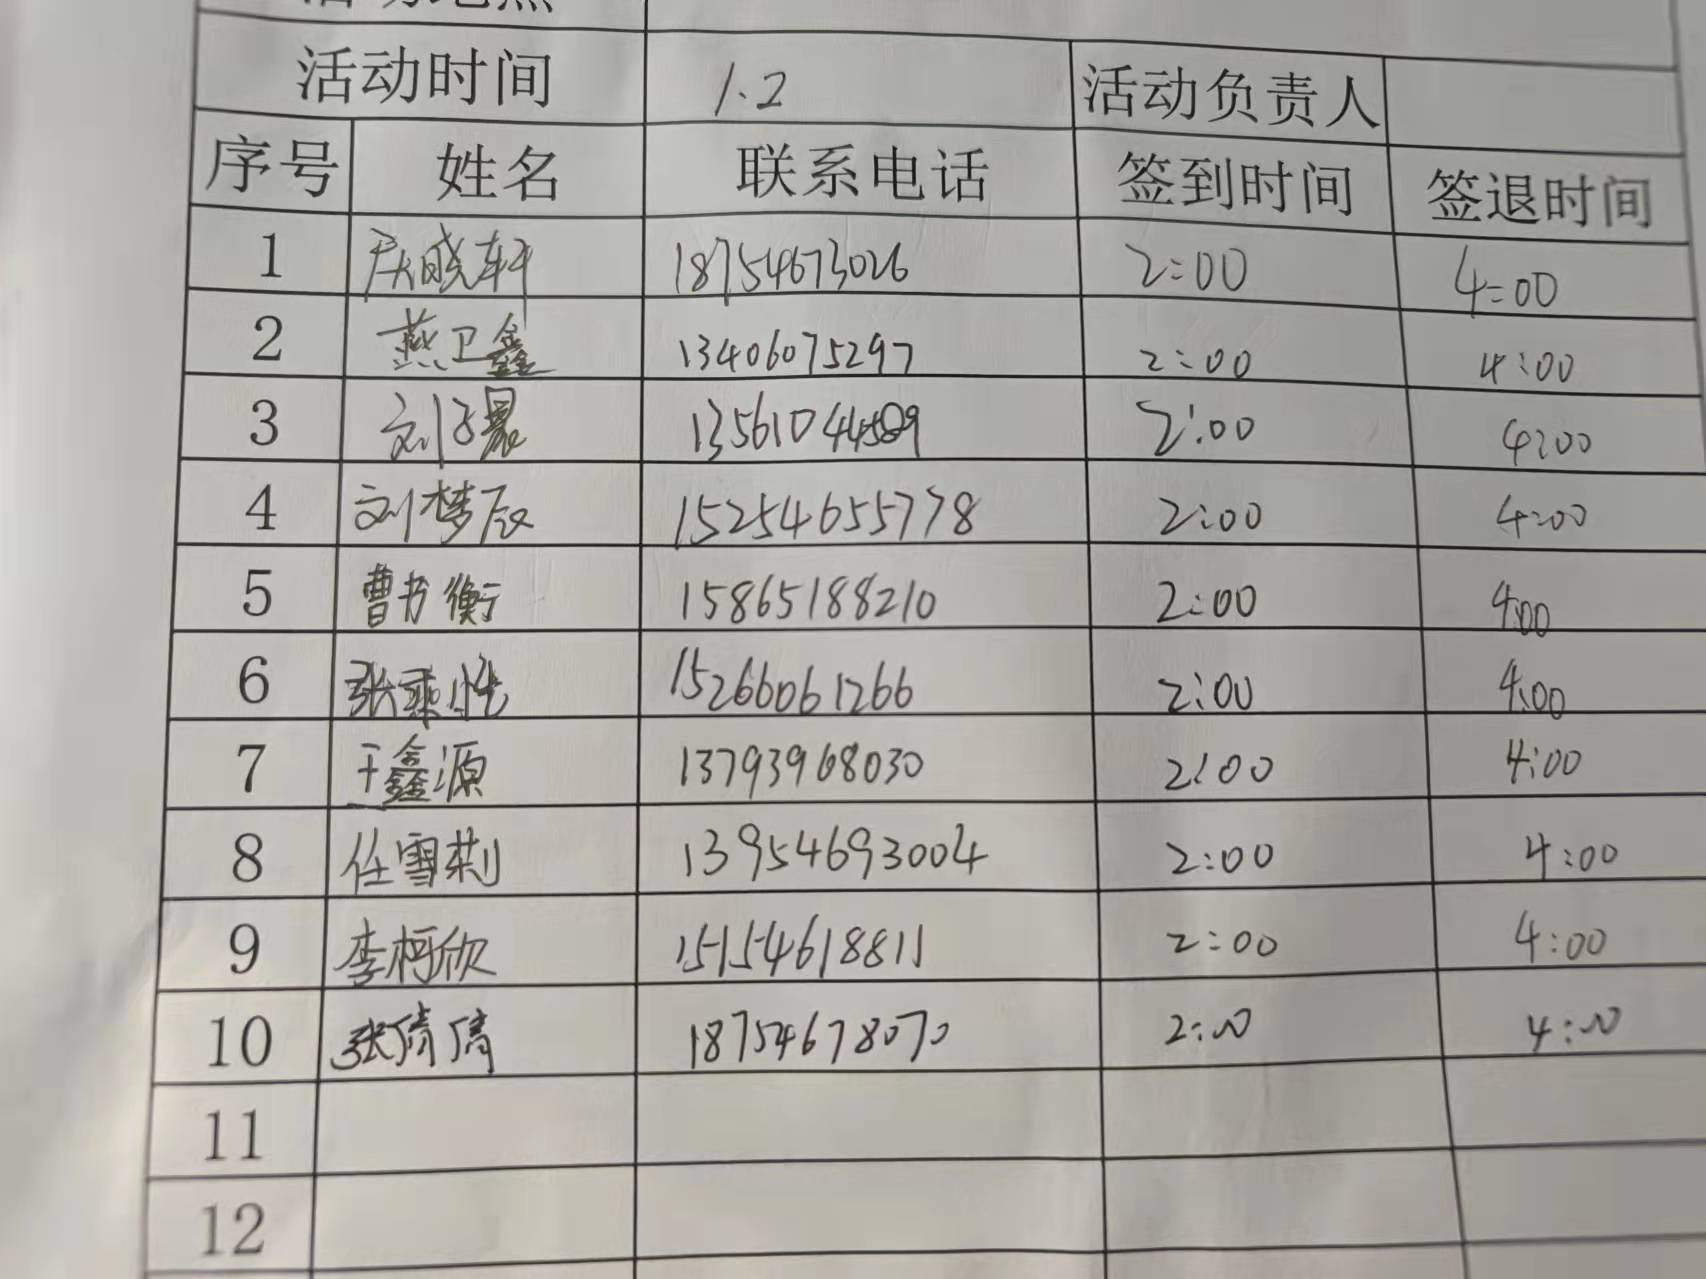 活动时间 1.2 活动负责人
序号 姓名 联系电话 签到时间 签退时间
1 晓轩 18754673026 2:00 4:00
2 燕卫鑫 13406075297 2:00 4:00
3 刘子晨 2:00 4:00
4 刘梦辰 15254655778 2:00 4:00
5 曹书衡 15865188210 2:00 4:00
6 张 15266061266 2:00 4:00
7 王鑫源 13793968030 2:00 4:00
8 任雪莉 13954693004 2:00 4:00
9 李柯欣 15154618811 2:00 4:00
10 张倩倩 18754678070 2:00 4:00
11
12